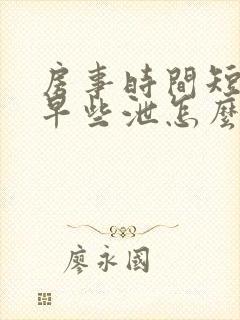 房事時間短
早些泄怎麼
廖永國